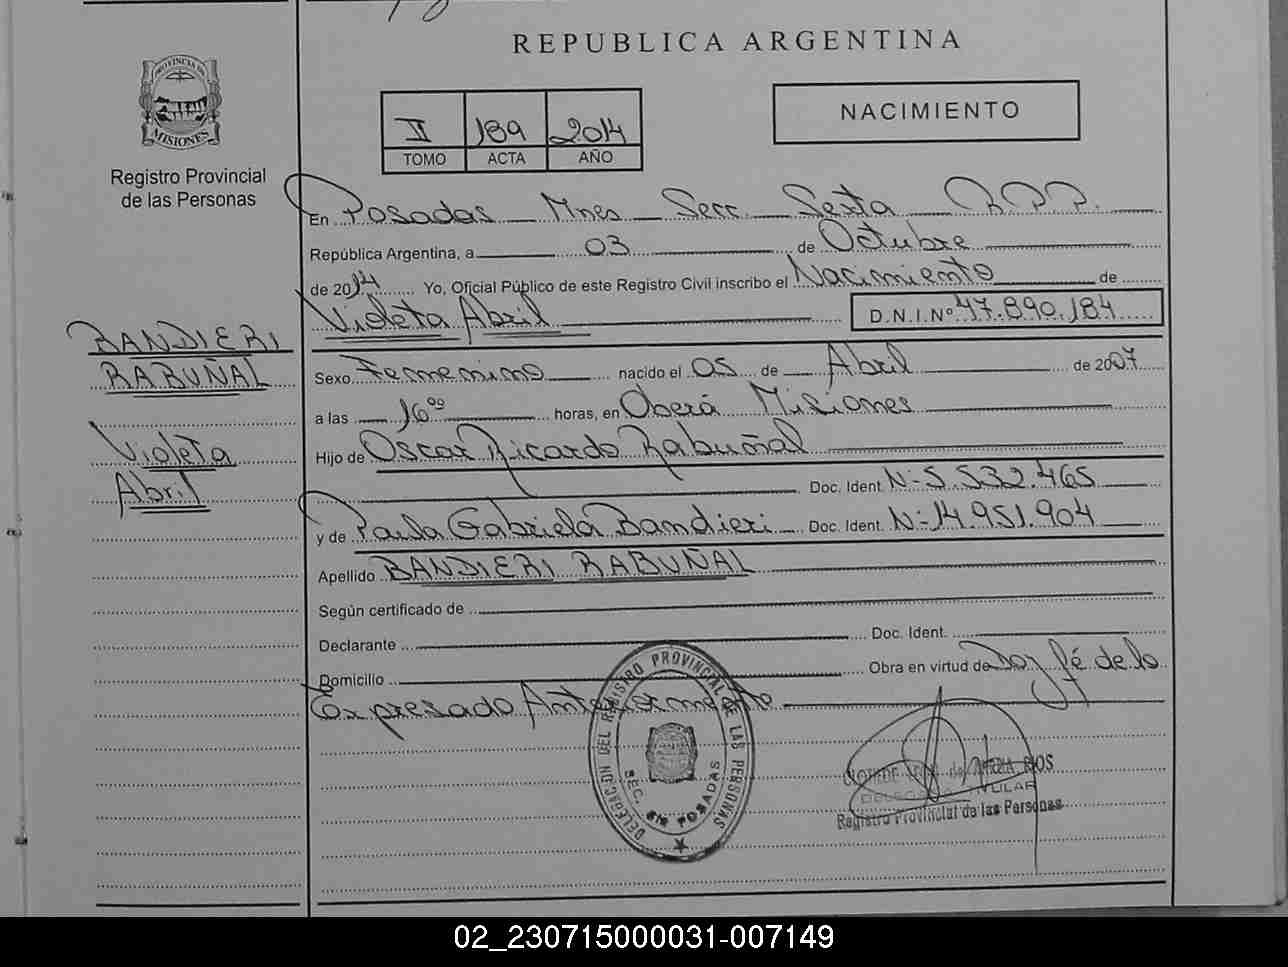 REPUBLICA ARGENTINA
PROVINCIA DE MISIONES
Registro Provincial
de las Personas
II 189 2014
TOMO ACTA AÑO
NACIMIENTO
En Posadas Mnes Secc. Sexta R.P.P.
República Argentina, a 03 de Octubre
de 2014 Yo, Oficial Público de este Registro Civil inscribo el Nacimiento de
Violeta Abril D.N.I.Nº 47.890.184
BANDIERI
RABUÑAL
Violeta
Abril
Sexo Femenino nacido el 05 de Abril de 2007
a las 16⁰⁰ horas, en Oberá Misiones
Hijo de Oscar Ricardo Rabuñal
Doc. Ident. Nº 5.532.465
y de Paula Gabriela Bandieri Doc. Ident. Nº 14.951.904
Apellido BANDIERI RABUÑAL
Según certificado de
Declarante Doc. Ident.
Domicilio Obra en virtud de Doy fé de lo
Expresado Anteriormente
DELEGACION DEL REGISTRO PROVINCIAL DE LAS PERSONAS
SEC. 6ta POSADAS
RIOS
Registro Provincial de las Personas
02_230715000031-007149